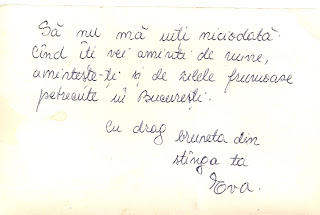 Să nu mă uiți niciodată.
Cînd îți vei aminti de mine,
amintește-ți și de zilele frumoase
petrecute în București.
Cu drag bruneta din
stînga ta
Eva.